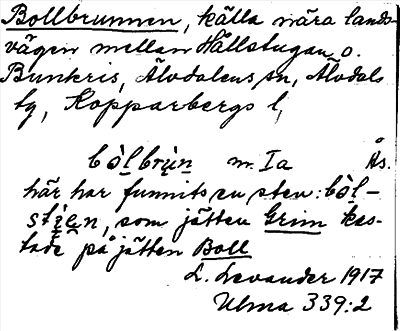 Bollbrunnen, källa nära lands-
vägen mellan Hållstugan o.
Bunkris, Älvdalens sn, Älvdals
tg, Kopparbergs l,
bòlbrùn m. Ia Ås.
här har funnits en sten: bòl-
, som jätten Grim kas-
tade på jätten Boll
L. Levander 1917
Ulma 339:2